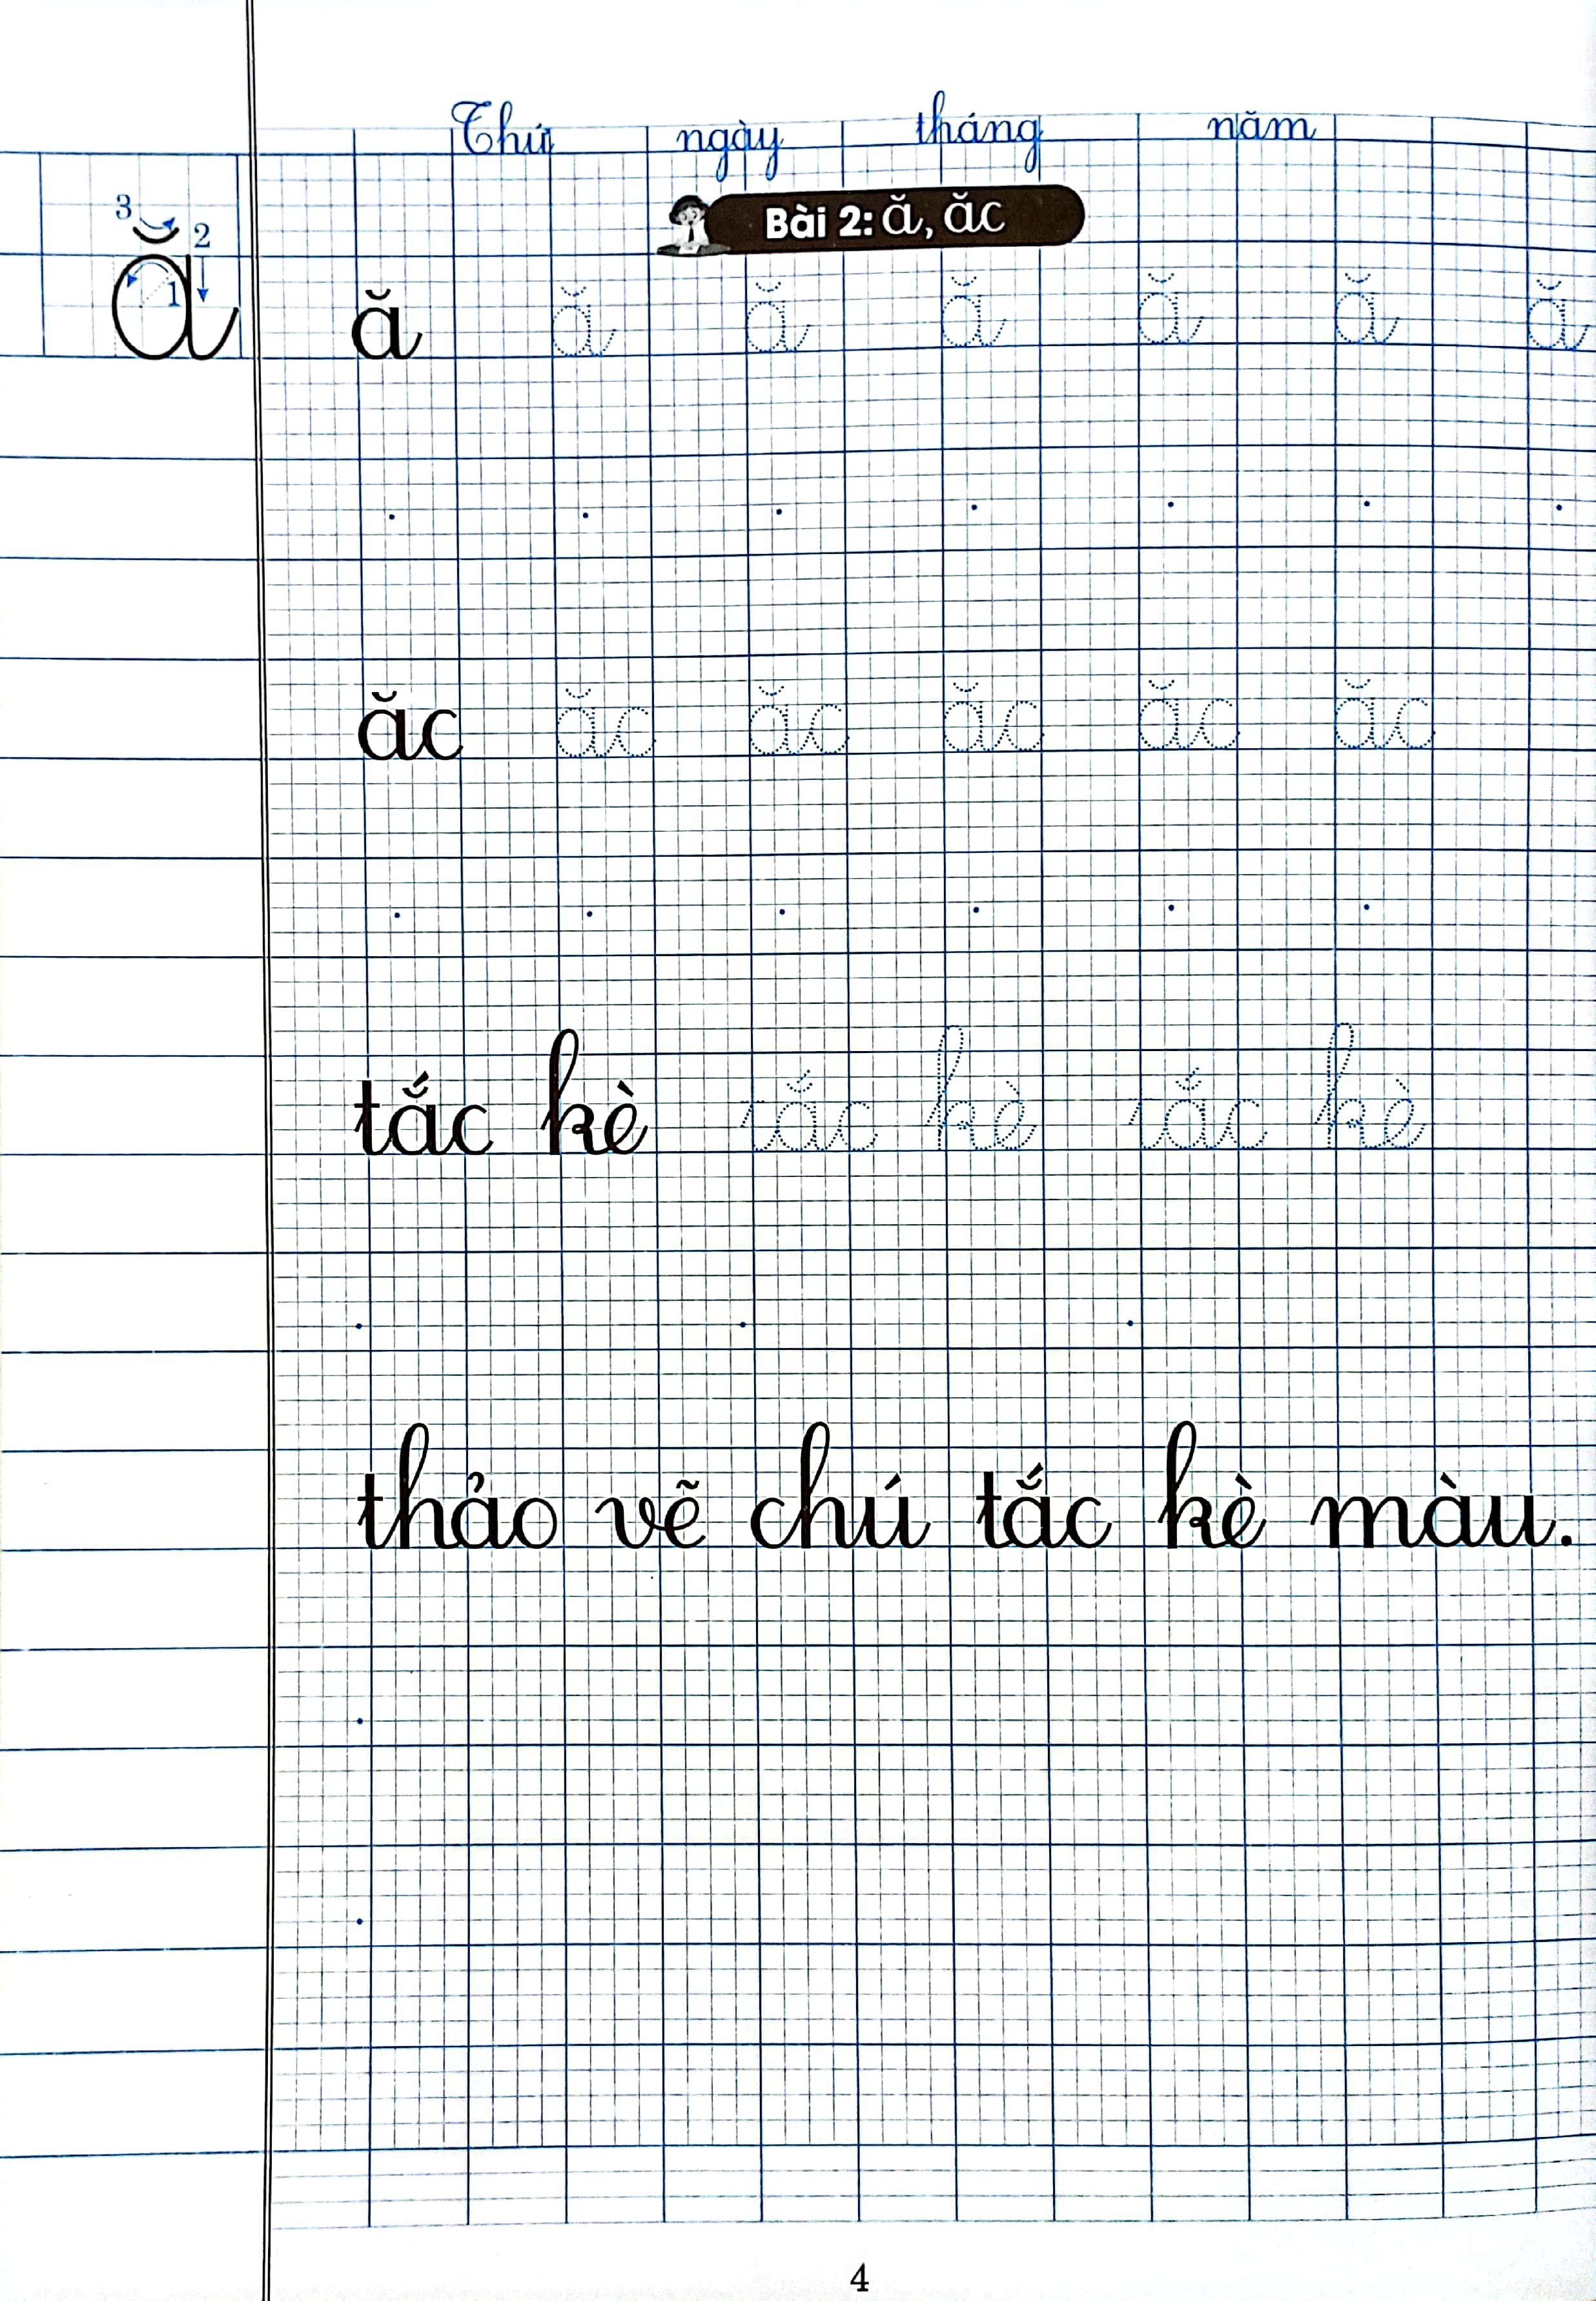 Thứ ngày tháng năm
Bài 2: ă, ăc
3
2
1
ă
ă ă ă ă ă ă ă
ăc ăc ăc ăc ăc ăc
tắc kè tắc kè tắc kè
thảo vẽ chú tắc kè màu.
4